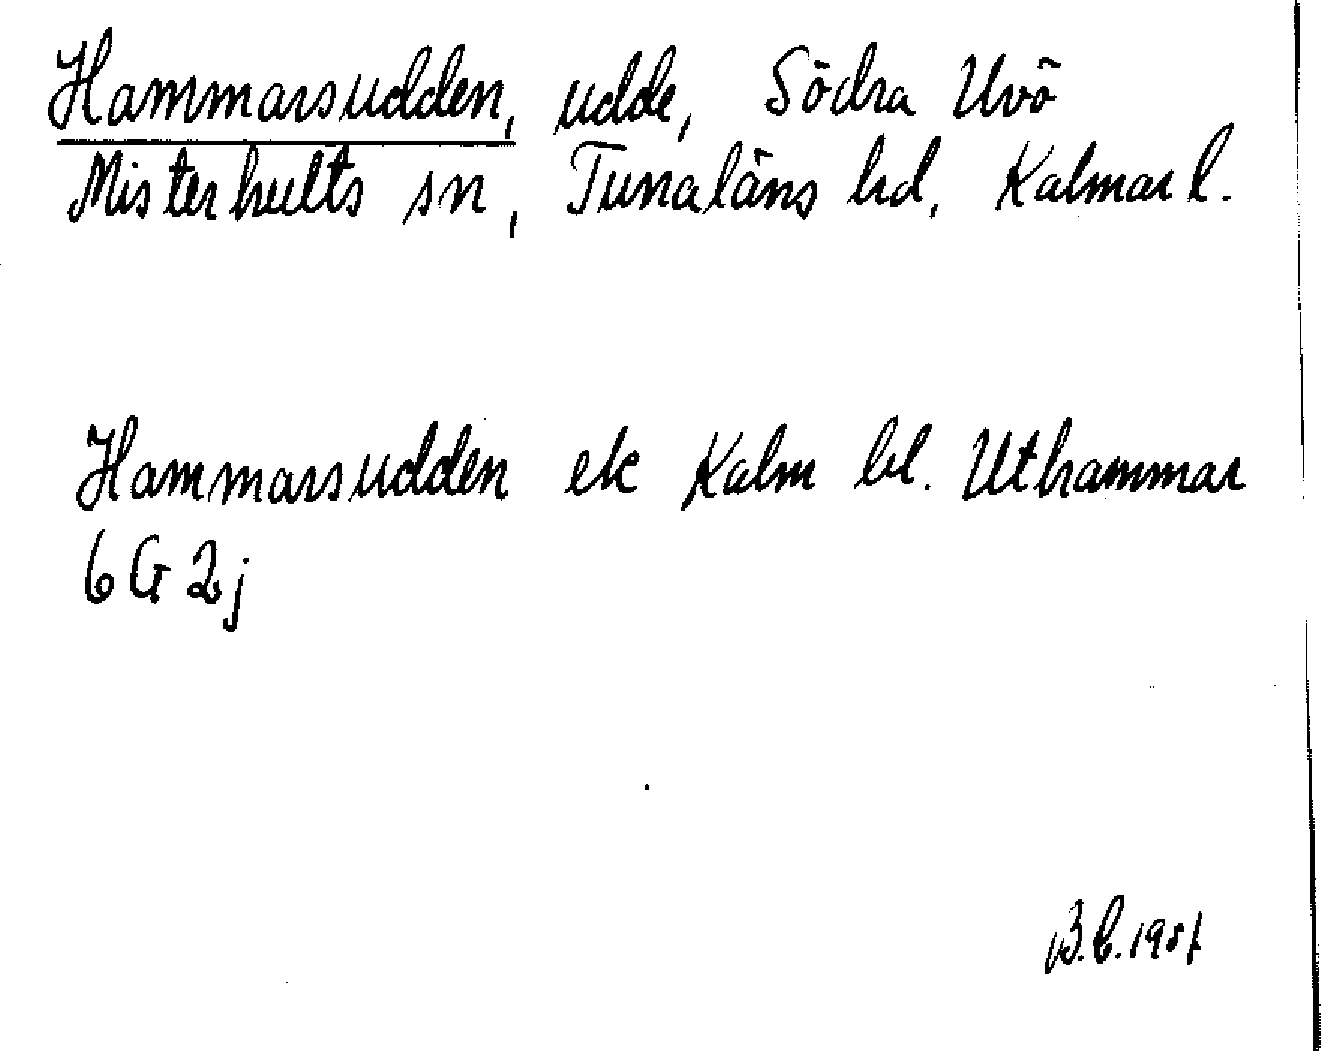 Hammarsudden, udde, Södra Uvö
Misterhults sn, Tunaläns hd, Kalmar l.
Hammarsudden ek Kalm bl. Uthammar
6G 2j
B.C.